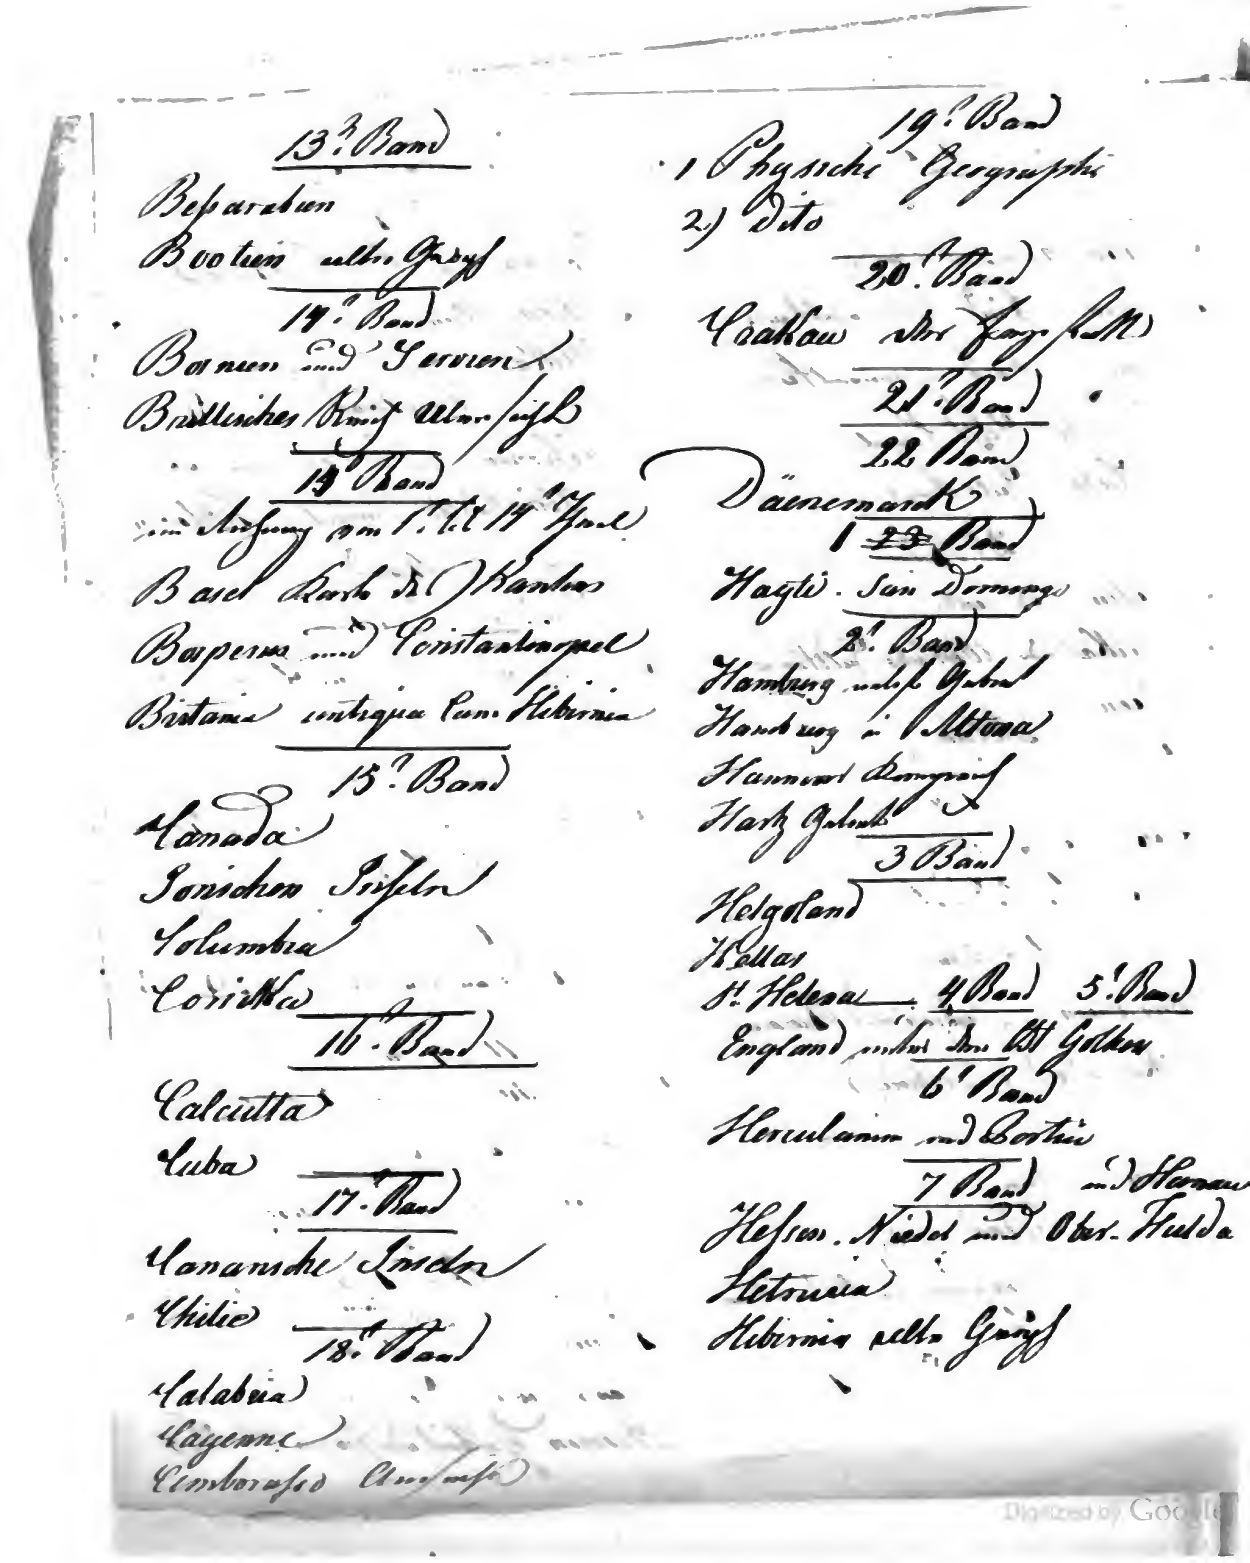 13t Band
Beßarabien
Bootien alte Geogf
14t Band
Bosnien und Servien
Brittisches Reich
14 Band
im Anhang von 1t 14t
Basel Karte des Kantons
Bosperus und Constantinopel
Brittania antiqua cum Hibernia
15t Band
Canada
Ionischen Inseln
Columbia
Corsika
16t Band
Calcutta
Cuba
17t Band
Canarische Inseln
Chilie
18t Band
Calabria
Cayenne
Cimboraßo
19t Band
1 Physiche Geographi
2) Dito
20t Band
Crakau
21t Band
22 Band
Däenemark
1 23 Band
Hayti. San Domingo
2t Band
Hamburg nebst Gebiet
Hamburg u Altona
Hannover Königreich
Hartz Gebirk
3 Band
Helgoland
Hellas
St. Helena 4 Band 5t Band
England
6t Band
Herculanum und Portici
7 Band und Hanau
Heßen. Nieder und Ober. Fulda
Hetruria
Hibernia alte Geogf
Digitized by Google